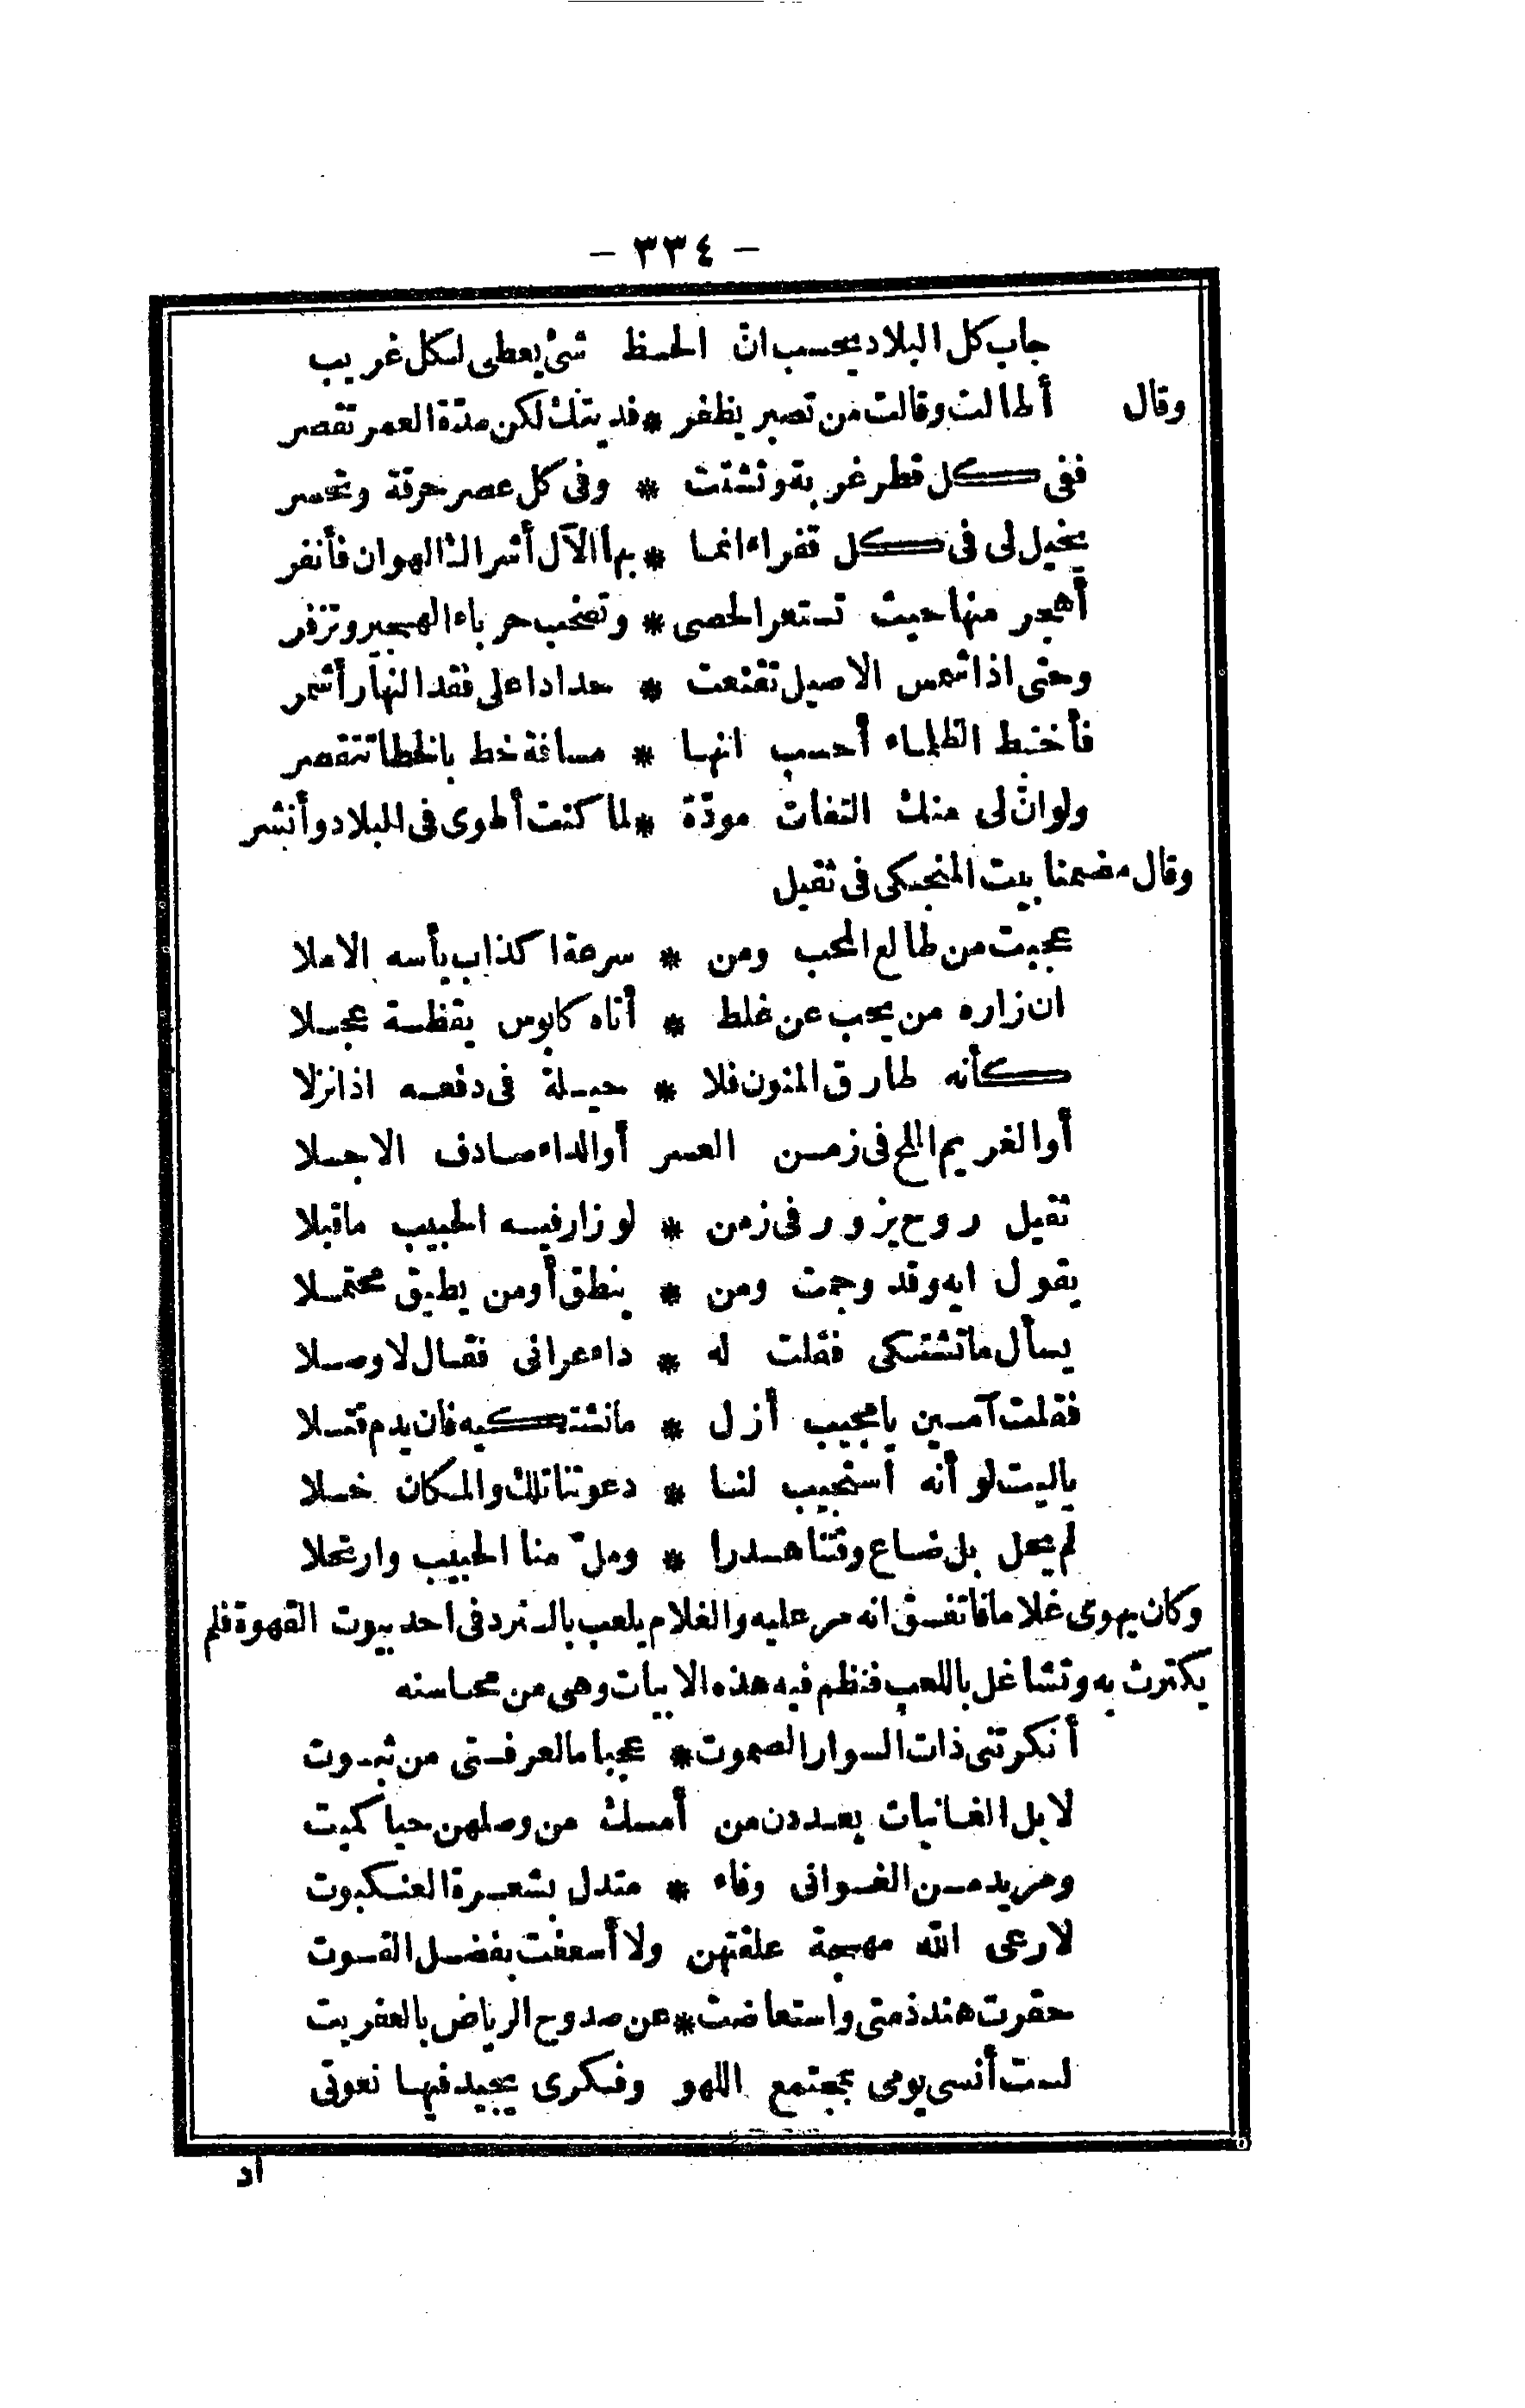 - ٣٣٤ -
جاب كل البلاد يحسب انّ الحظ شئ يعطى لكل غريب
وقال أطالت وقالت من تصبر يظفر * فديتك لكن مدّة العمر تقصر
ففى كل قطر غربة وتشتت * وفى كل عصر حرقة وتحسر
يخيل لى فى كل قفراء انما * بها الآل أشراك الهوان فأنفر
أهجر منها حيث تستعر الحصى * وتصخب حرباء الهجير وتزفر
وحتى اذا شمس الاصيل تقنعت * حدادا على فقد النهار أشمر
فأختبط الظلماء أحسب انها * مسافة خط بالخطا تتقصر
ولو انّ لى منك التفات مودّة * لما كنت أطوى فى البلاد وأنشر
وقال مضمنا بيت المنجكى فى ثقيل
عجبت من طالع المحب ومن * سرعة اكذاب يأسه الاملا
ان زاره من يحب عن غلط * أتاه كابوس يقظة عجلا
كأنه طارق المنون فلا * حيلة فى دفعه اذا نزلا
أو الغريم الملح فى زمن العسر أو الداء صادف الاجلا
ثقيل روح يزور فى زمن * لو زار فيه الحبيب ما قبلا
يقول ايه وقد وجمت ومن * ينطق أو من يطيق محتملا
يسأل ما تشتكى فقلت له * داء عرانى فقال لا وصلا
فقلت آمين يا مجيب أزل * ما نشتكيه فان يدم قتلا
ياليت لو أنه استجيب لنا * دعوتنا تلك والمكان خلا
لم يحل بل ضاع وقتنا هدرا * وملّ منا الحبيب وارتحلا
وكان يهوى غلاما فاتفق انه مر عليه والغلام يلعب بالنرد فى احد بيوت القهوة فلم
يكترث به وتشاغل باللعب فنظم فيه هذه الابيات وهى من محاسنه
أنكرتنى ذات السوار الصموت * عجبا ما لعرفتى من ثبوت
لا بل الغانيات يعددن من أمسك من وصلهن حيا كميت
ومريد من الغوانى وفاء * متدل بشعرة العنكبوت
لا رعى الله مهجة علقتهن ولا أسعفت بفضل القوت
حقرت هند ذمتى واستعاضت * عن صدوح الرياض بالعفريت
لست أنسى يومى بمجتمع اللهو وفكرى يجيد فيها نعوتى
اد